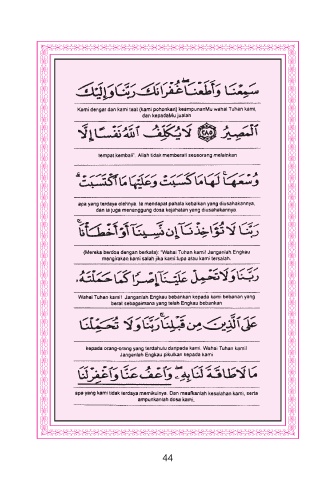 سَمِعْنَا وَأَطَعْنَا ۖ غُفْرَانَكَ رَبَّنَا وَإِلَيْكَ
Kami dengar dan kami taat (kami pohonkan) keampunanMu wahai Tuhan kami,
dan kepadaMu jualah
الْمَصِيرُ ﴿٢٨٥﴾ لَا يُكَلِّفُ اللَّهُ نَفْسًا إِلَّا
tempat kembali". Allah tidak memberati seseorang melainkan
وُسْعَهَا ۚ لَهَا مَا كَسَبَتْ وَعَلَيْهَا مَا اكْتَسَبَتْ ۗ
apa yang terdaya olehnya. Ia mendapat pahala kebaikan yang diusahakannya,
dan ia juga menanggung dosa kejahatan yang diusahakannya.
رَبَّنَا لَا تُؤَاخِذْنَا إِن نَّسِينَا أَوْ أَخْطَأْنَا ۚ
(Mereka berdoa dengan berkata): "Wahai Tuhan kami! Janganlah Engkau
mengirakan kami salah jika kami lupa atau kami tersalah.
رَبَّنَا وَلَا تَحْمِلْ عَلَيْنَا إِصْرًا كَمَا حَمَلْتَهُ،
Wahai Tuhan kami! Janganlah Engkau bebankan kepada kami bebanan yang
berat sebagaimana yang telah Engkau bebankan
عَلَى الَّذِينَ مِن قَبْلِنَا ۚ رَبَّنَا وَلَا تُحَمِّلْنَا
kepada orang-orang yang terdahulu daripada kami. Wahai Tuhan kami!
Janganlah Engkau pikulkan kepada kami
مَا لَا طَاقَةَ لَنَا بِهِ ۖ وَاعْفُ عَنَّا وَاغْفِرْ لَنَا
apa yang kami tidak terdaya memikulnya. Dan maafkanlah kesalahan kami, serta
ampunkanlah dosa kami,
44